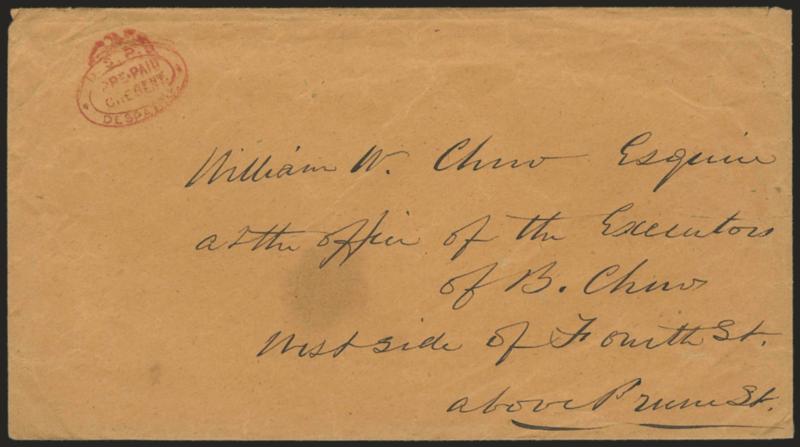 U. S. P. O.
PRE-PAID
ONE CENT.
DESPATCH.
William W. Chew Esquire
at the office of the Executors
of B. Chew
West side of Fourth St.
above Prune St.